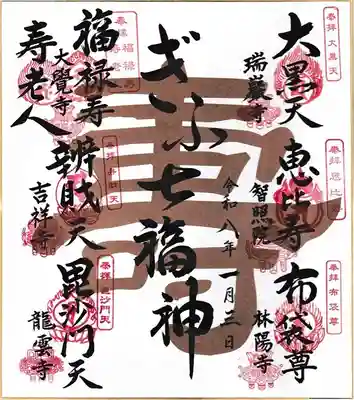 奉拝 大黒天
大黒天
瑞巌寺
奉拝 恵比寿
恵比寿
智照院
奉拝 布袋尊
布袋尊
林陽寺
ぎふ七福神
令和八年一月三日
壽
奉拝 福禄寿
福禄寿
大覺寺
寿老人
奉拝 弁財天
辨財天
吉祥寺
奉拝 毘沙門天
毘沙門天
龍雲寺